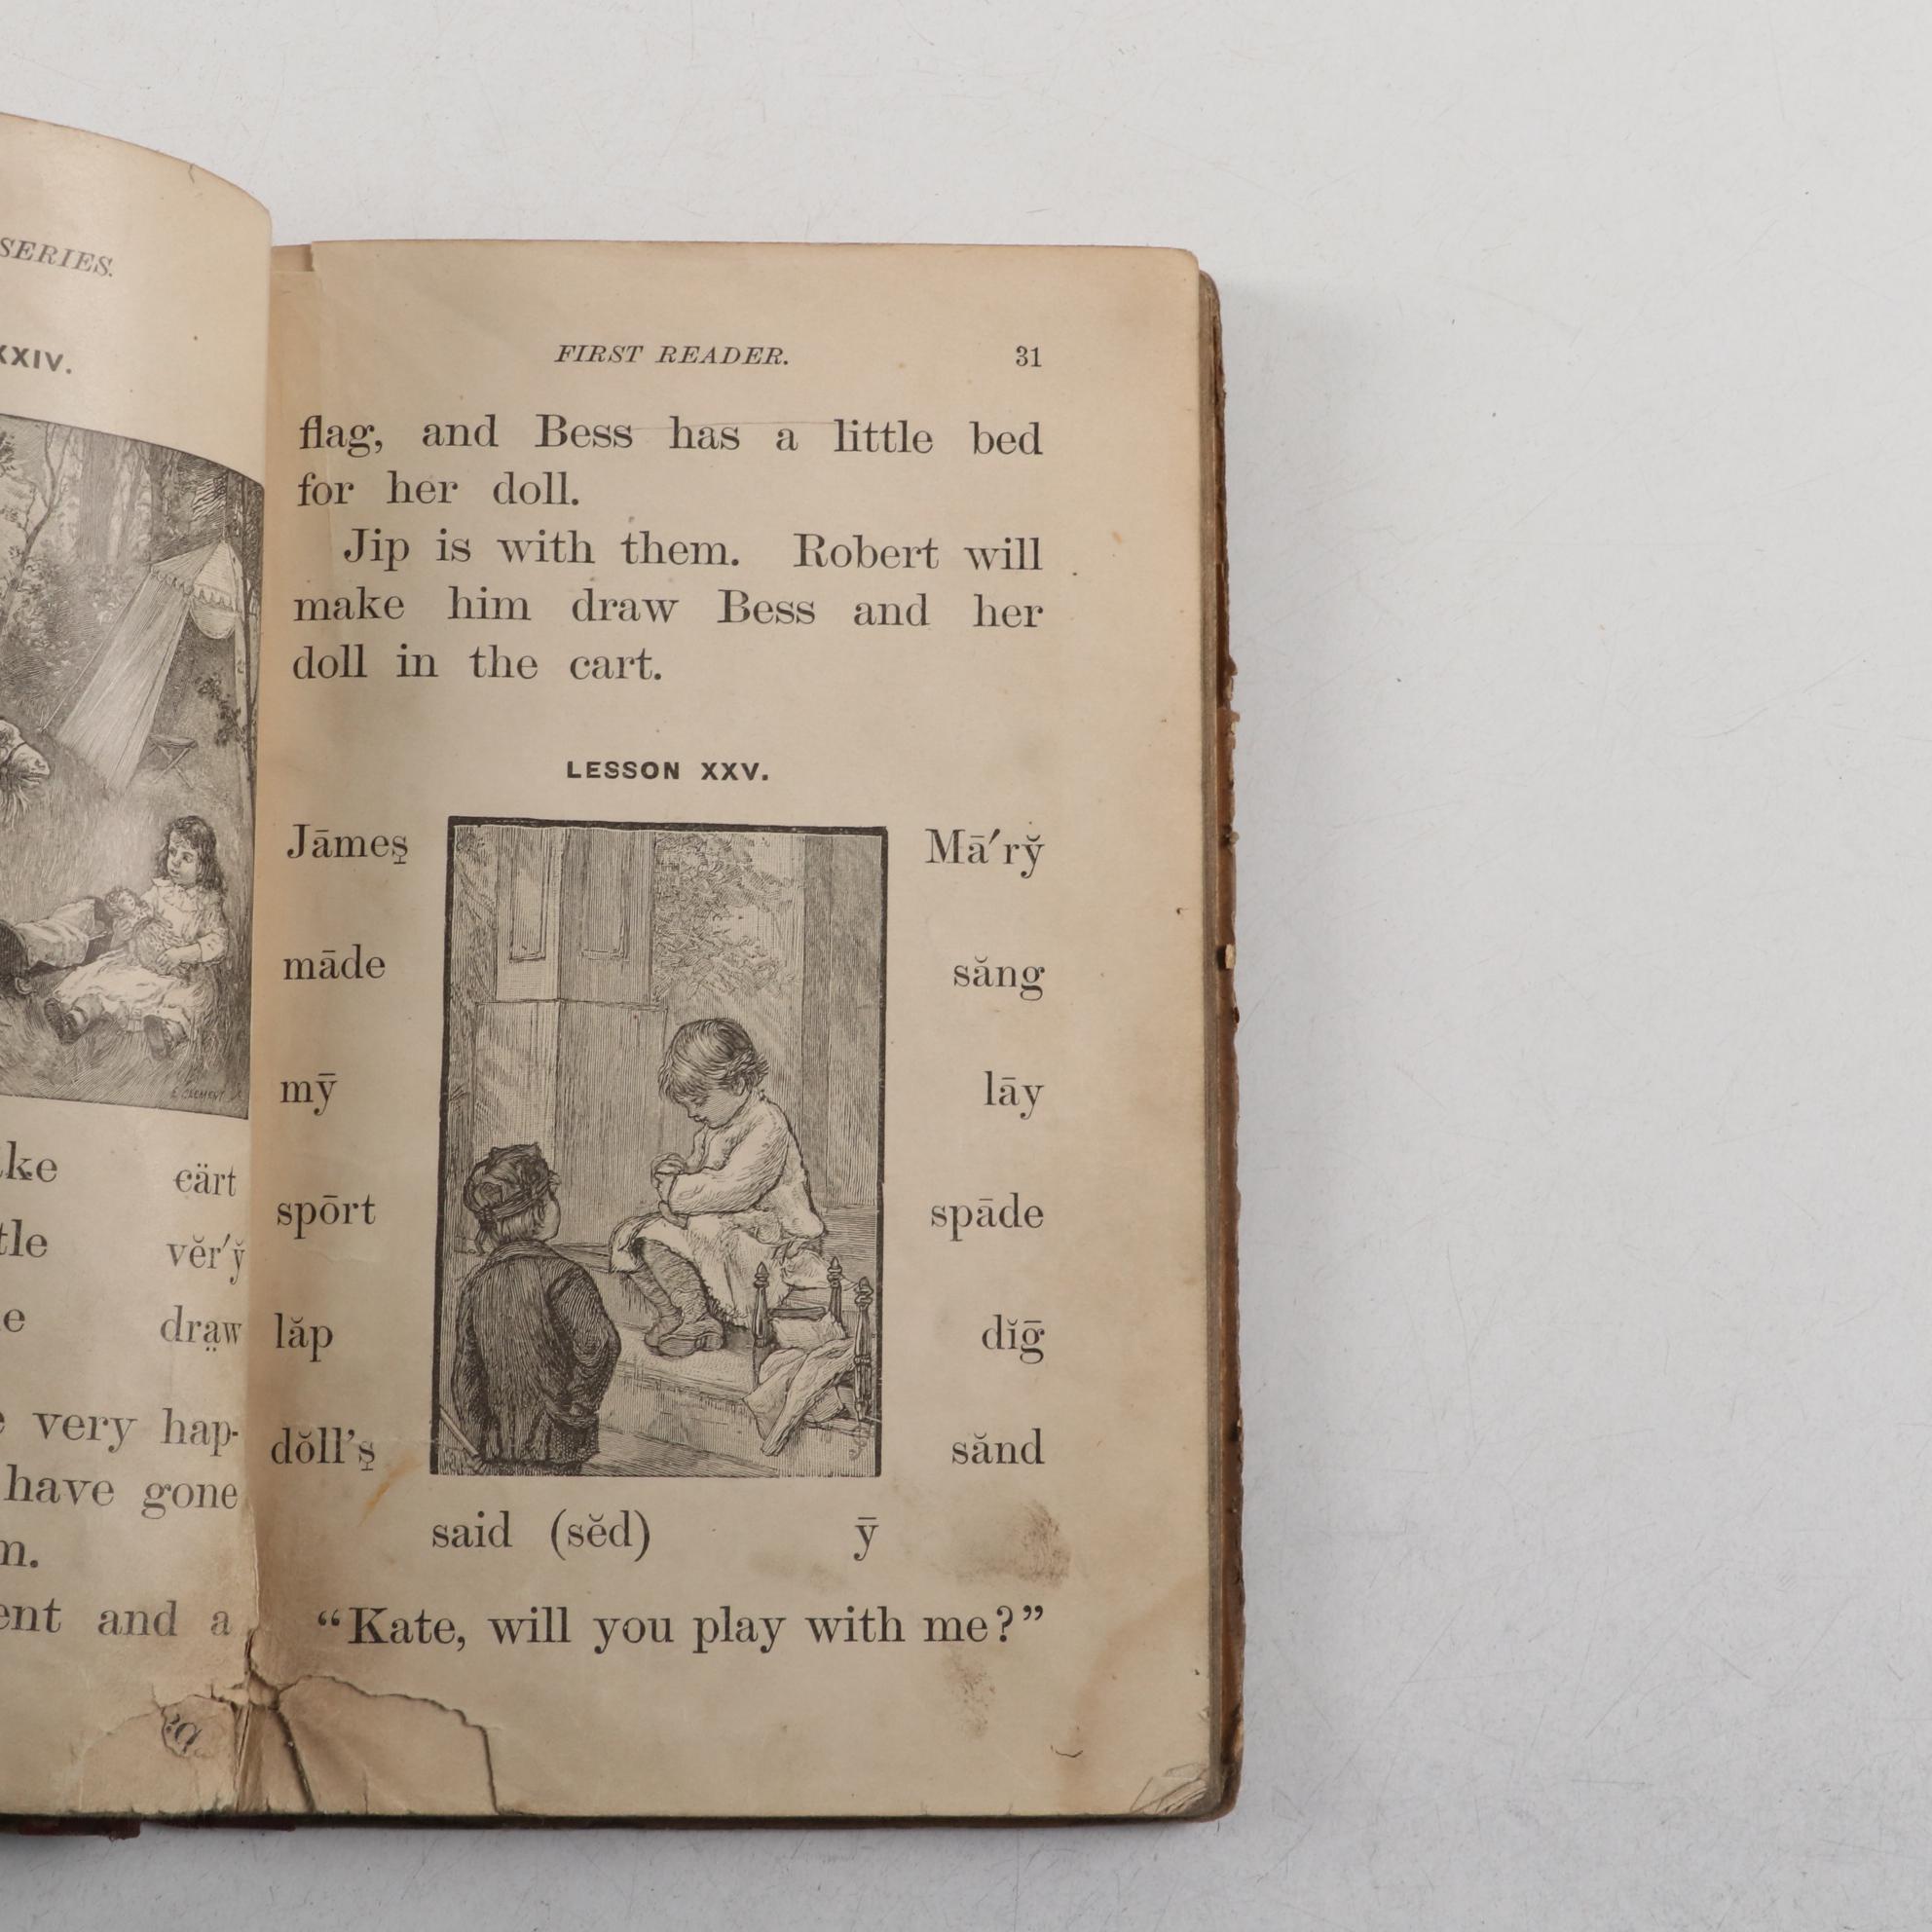 SERIES.
XXIV.
cärt
vĕr′y̆
dra̤w
very hap-
have gone
and a
FIRST READER. 31
flag, and Bess has a little bed
for her doll.
Jip is with them. Robert will
make him draw Bess and her
doll in the cart.
LESSON XXV.
Jāmeş Mā′ry̆
māde săng
mȳ lāy
spōrt spāde
lăp dĭḡ
dŏll’ş sănd
said (sĕd) ȳ
“Kate, will you play with me?”